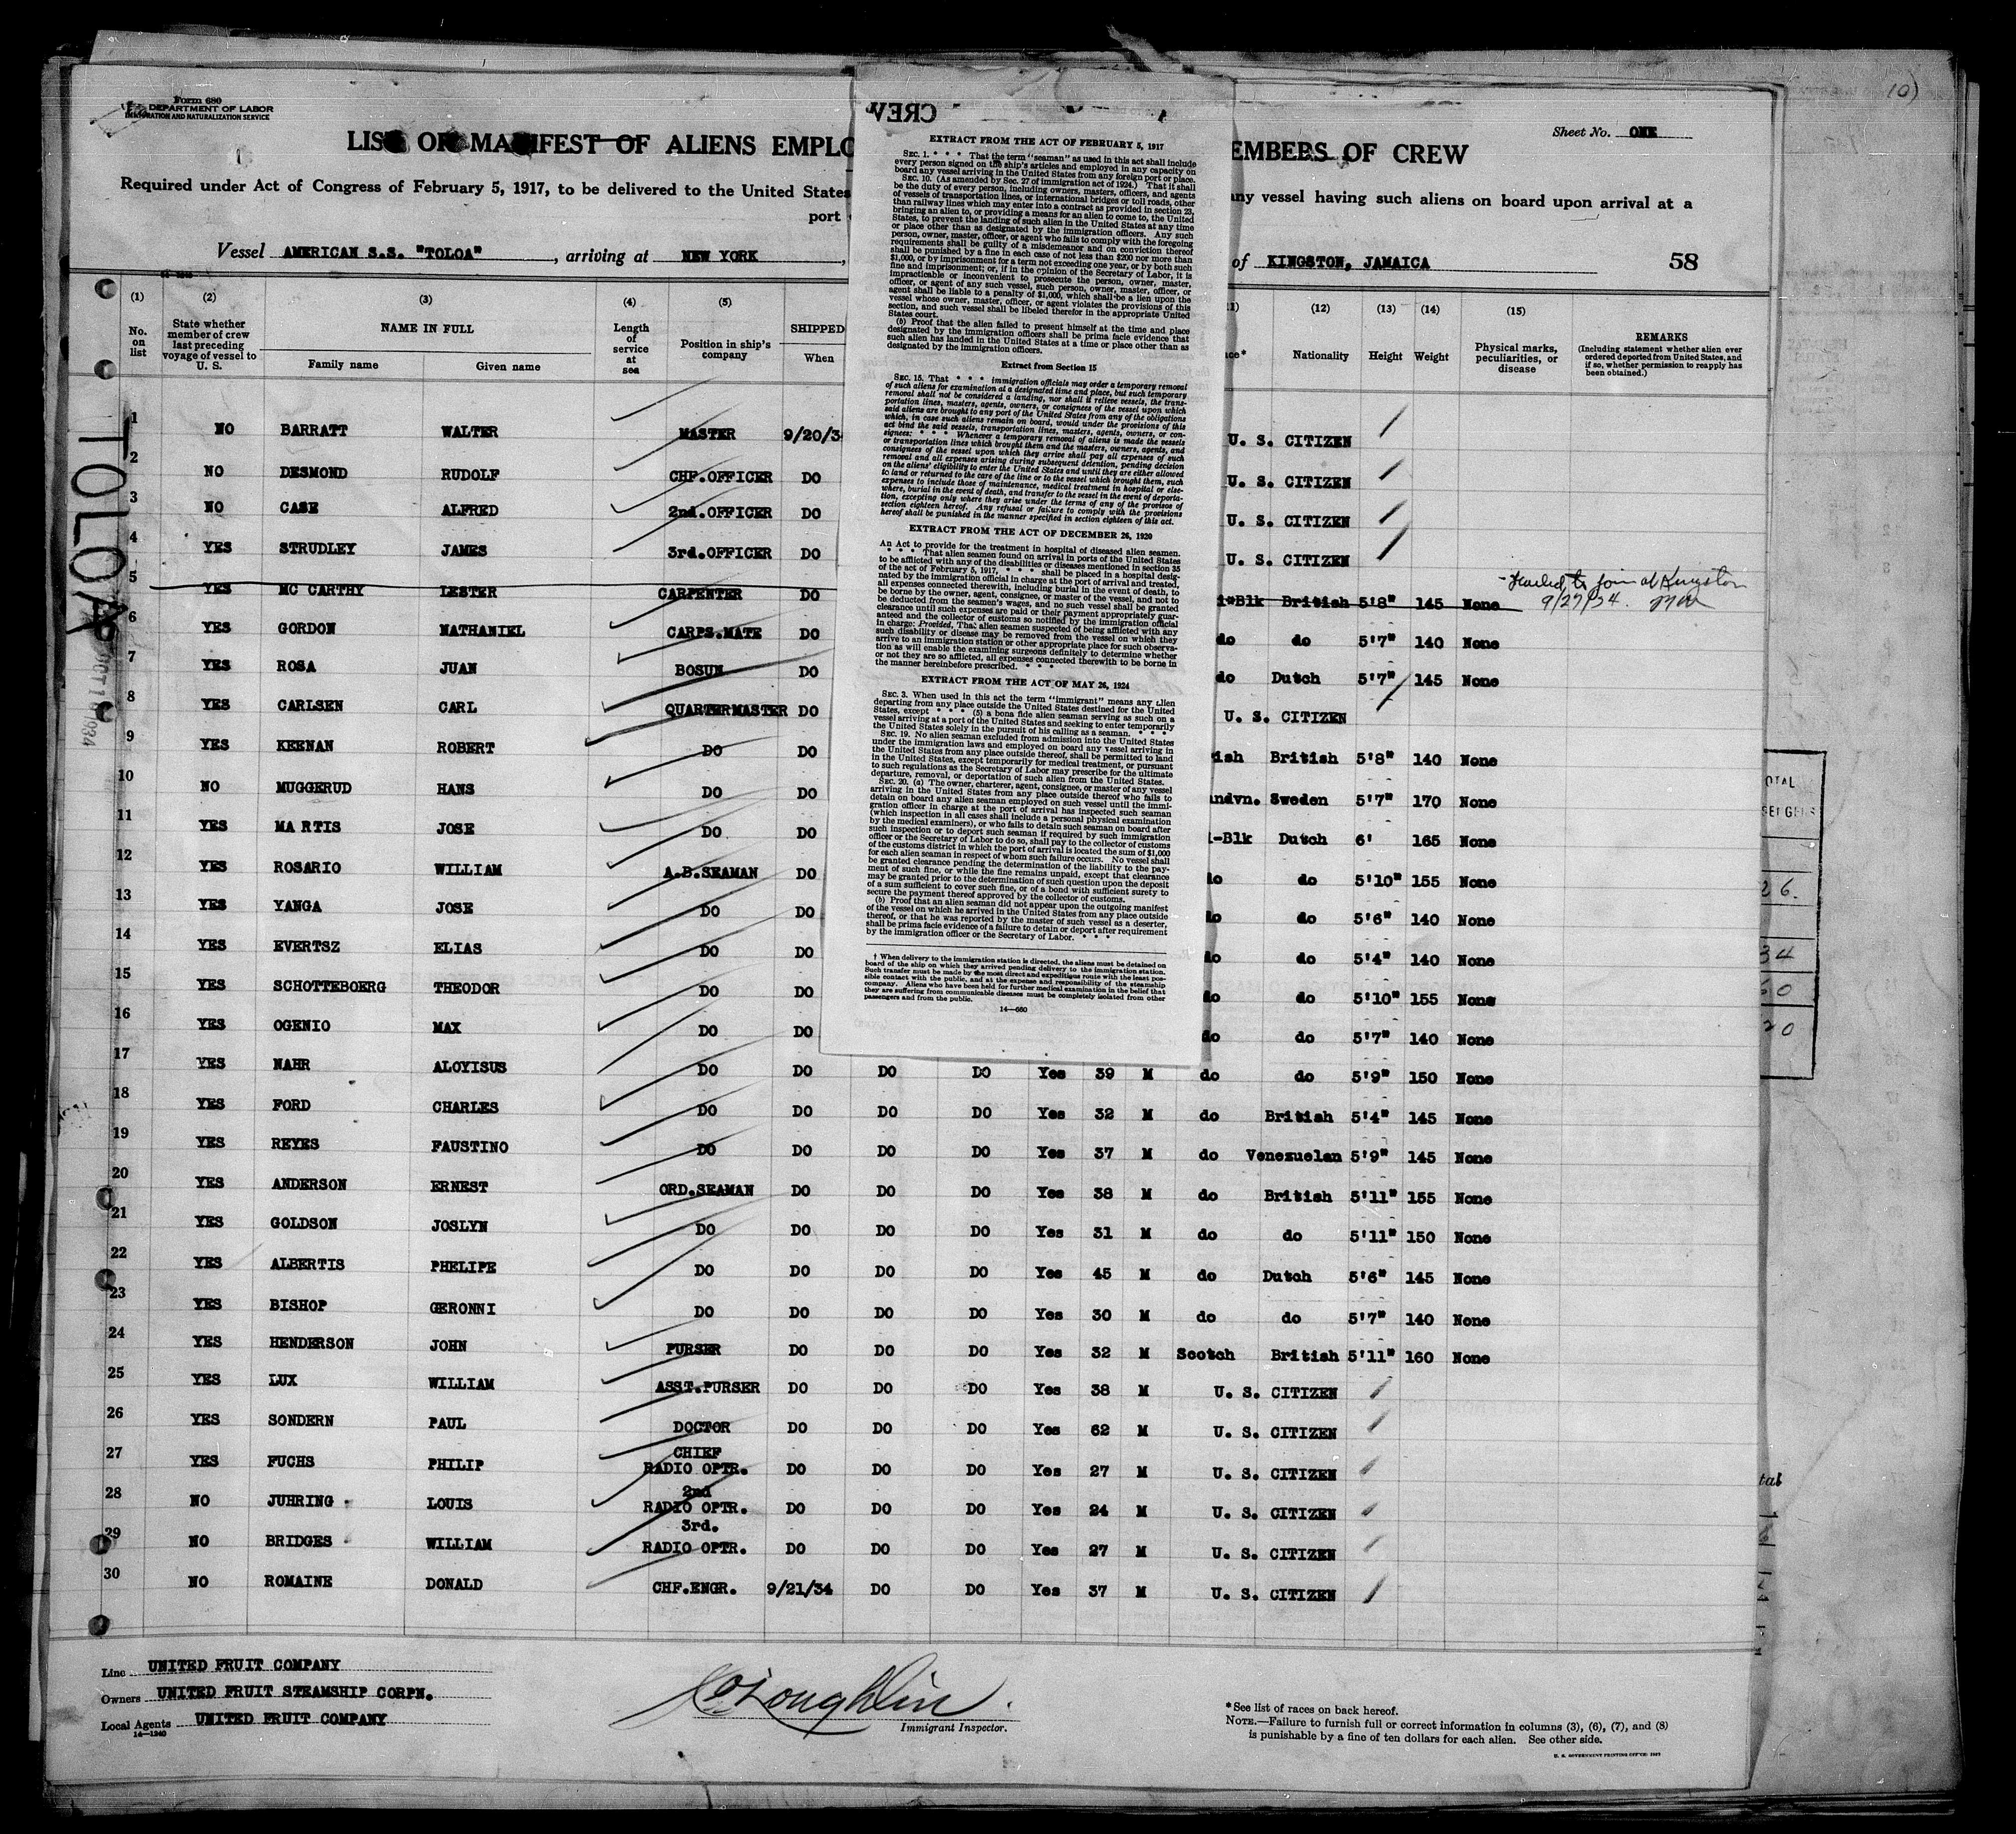 Form 680
U. S. DEPARTMENT OF LABOR
IMMIGRATION AND NATURALIZATION SERVICE
Sheet No. ONE
LIST OR MANIFEST OF ALIENS EMPLO
EMBERS OF CREW
Required under Act of Congress of February 5, 1917, to be delivered to the United States
any vessel having such aliens on board upon arrival at a
port
Vessel AMERICAN S.S. "TOLOA", arriving at NEW YORK,
of KINGSTON, JAMAICA 58
(1) (2) (3) (4) (5) (12) (13) (14) (15)
No. on list
State whether member of crew last preceding voyage of vessel to U. S.
NAME IN FULL
Family name Given name
Length of service at sea
Position in ship's company
SHIPPED
When
Nationality Height Weight
Physical marks, peculiarities, or disease
REMARKS
(Including statement whether alien ever ordered deported from United States, and if so, whether permission to reapply has been obtained.)
1 NO BARRATT WALTER MASTER 9/20/3 U. S. CITIZEN
2 NO DESMOND RUDOLF CHF.OFFICER DO U. S. CITIZEN
3 NO CASE ALFRED 2nd.OFFICER DO U. S. CITIZEN
4 YES STRUDLEY JAMES 3rd.OFFICER DO U. S. CITIZEN
5 YES MC CARTHY LESTER CARPENTER DO Blk British 5'8" 145 None Failed to join at Kingston
9/27/34.
6 YES GORDON NATHANIEL CARPS.MATE DO do do 5'7" 140 None
7 YES ROSA JUAN BOSUN DO do Dutch 5'7" 145 None
8 YES CARLSEN CARL QUARTERMASTER DO U. S. CITIZEN
9 YES KEENAN ROBERT DO DO ish British 5'8" 140 None
10 NO MUGGERUD HANS DO DO ndvn. Sweden 5'7" 170 None
11 YES MARTIS JOSE DO DO -Blk Dutch 6' 165 None
12 YES ROSARIO WILLIAM A.B.SEAMAN DO do do 5'10" 155 None
13 YES YANGA JOSE DO DO do do 5'6" 140 None
14 YES EVERTSZ ELIAS DO DO do do 5'4" 140 None
15 YES SCHOTTEBOERG THEODOR DO DO do do 5'10" 155 None
16 YES OGENIO MAX DO DO do do 5'7" 140 None
17 YES NAHR ALOYISUS DO DO DO DO Yes 39 M do do 5'9" 150 None
18 YES FORD CHARLES DO DO DO DO Yes 32 M do British 5'4" 145 None
19 YES REYES FAUSTINO DO DO DO DO Yes 37 M do Venezuelan 5'9" 145 None
20 YES ANDERSON ERNEST ORD.SEAMAN DO DO DO Yes 38 M do British 5'11" 155 None
21 YES GOLDSON JOSLYN DO DO DO DO Yes 31 M do do 5'11" 150 None
22 YES ALBERTIS PHELIPE DO DO DO DO Yes 45 M do Dutch 5'6" 145 None
23 YES BISHOP GERONNI DO DO DO DO Yes 30 M do do 5'7" 140 None
24 YES HENDERSON JOHN PURSER DO DO DO Yes 32 M Scotch British 5'11" 160 None
25 YES LUX WILLIAM ASST.PURSER DO DO DO Yes 38 M U. S. CITIZEN
26 YES SONDERN PAUL DOCTOR DO DO DO Yes 62 M U. S. CITIZEN
27 YES FUCHS PHILIP CHIEF RADIO OPTR. DO DO DO Yes 27 M U. S. CITIZEN
28 NO JUHRING LOUIS 2nd RADIO OPTR. DO DO DO Yes 24 M U. S. CITIZEN
29 NO BRIDGES WILLIAM 3rd. RADIO OPTR. DO DO DO Yes 27 M U. S. CITIZEN
30 NO ROMAINE DONALD CHF.ENGR. 9/21/34 DO DO Yes 37 M U. S. CITIZEN
TOLOA
Line UNITED FRUIT COMPANY
Owners UNITED FRUIT STEAMSHIP CORPN.
Local Agents UNITED FRUIT COMPANY
14—1240
Immigrant Inspector.
*See list of races on back hereof.
NOTE.—Failure to furnish full or correct information in columns (3), (6), (7), and (8)
is punishable by a fine of ten dollars for each alien. See other side.
CREW
EXTRACT FROM THE ACT OF FEBRUARY 5, 1917
SEC. 1. * * * That the term "seaman" as used in this act shall include
every person signed on the ship's articles and employed in any capacity on
board any vessel arriving in the United States from any foreign port or place.
SEC. 10. (As amended by Sec. 27 of immigration act of 1924.) That it shall
be the duty of every person, including owners, masters, officers, and agents
of vessels of transportation lines, or international bridges or toll roads, other
than railway lines which may enter into a contract as provided in section 23,
bringing an alien to, or providing a means for an alien to come to, the United
States, to prevent the landing of such alien in the United States at any time
or place other than as designated by the immigration officers. Any such
person, owner, master, officer, or agent who fails to comply with the foregoing
requirements shall be guilty of a misdemeanor and on conviction thereof
shall be punished by a fine in each case of not less than $200 nor more than
$1,000, or by imprisonment for a term not exceeding one year, or by both such
fine and imprisonment; or, if in the opinion of the Secretary of Labor, it is
impracticable or inconvenient to prosecute the person, owner, master,
officer, or agent of any such vessel, such person, owner, master, officer, or
agent shall be liable to a penalty of $1,000, which shall be a lien upon the
vessel whose owner, master, officer, or agent violates the provisions of this
section, and such vessel shall be libeled therefor in the appropriate United
States court.
(b) Proof that the alien failed to present himself at the time and place
designated by the immigration officers shall be prima facie evidence that
such alien has landed in the United States at a time or place other than as
designated by the immigration officers.
Extract from Section 15
SEC. 15. That * * * immigration officials may order a temporary removal
of such aliens for examination at a designated time and place, but such temporary
removal shall not be considered a landing, nor shall it relieve vessels, the trans-
portation lines, masters, agents, owners, or consignees of the vessel upon which
said aliens are brought to any port of the United States from any of the obligations
which, in case such aliens remain on board, would under the provisions of this
act bind the said vessels, transportation lines, masters, agents, owners, or con-
signees: * * * Whenever a temporary removal of aliens is made the vessels
or transportation lines which brought them and the masters, owners, agents, and
consignees of the vessel upon which they arrive shall pay all expenses of such
removal and all expenses arising during subsequent detention, pending decision
on the aliens' eligibility to enter the United States and until they are either allowed
to land or returned to the care of the line or to the vessel which brought them, such
expenses to include those of maintenance, medical treatment in hospital or else-
where, burial in the event of death, and transfer to the vessel in the event of deporta-
tion, excepting only where they arise under the terms of any of the provisos of
section eighteen hereof. Any refusal or failure to comply with the provisions
hereof shall be punished in the manner specified in section eighteen of this act.
EXTRACT FROM THE ACT OF DECEMBER 26, 1920
An Act to provide for the treatment in hospital of diseased alien seamen.
* * * That alien seamen found on arrival in ports of the United States
to be afflicted with any of the disabilities or diseases mentioned in section 35
of the act of February 5, 1917, * * * shall be placed in a hospital desig-
nated by the immigration official in charge at the port of arrival and treated,
all expenses connected therewith, including burial in the event of death, to
be borne by the owner, agent, consignee, or master of the vessel, and not to
be deducted from the seamen's wages, and no such vessel shall be granted
clearance until such expenses are paid or their payment appropriately guar-
anteed and the collector of customs so notified by the immigration official
in charge: Provided, That alien seamen suspected of being afflicted with any
such disability or disease may be removed from the vessel on which they
arrive to an immigration station or other appropriate place for such observa-
tion as will enable the examining surgeons definitely to determine whether
or not they are so afflicted, all expenses connected therewith to be borne in
the manner hereinbefore prescribed. * * *
EXTRACT FROM THE ACT OF MAY 26, 1924
SEC. 3. When used in this act the term "immigrant" means any alien
departing from any place outside the United States destined for the United
States, except * * * (5) a bona fide alien seaman serving as such on a
vessel arriving at a port of the United States and seeking to enter temporarily
the United States solely in the pursuit of his calling as a seaman. * * *
SEC. 19. No alien seaman excluded from admission into the United States
under the immigration laws and employed on board any vessel arriving in
the United States from any place outside thereof, shall be permitted to land
in the United States, except temporarily for medical treatment, or pursuant
to such regulations as the Secretary of Labor may prescribe for the ultimate
departure, removal, or deportation of such alien from the United States.
SEC. 20. (a) The owner, charterer, agent, consignee, or master of any vessel
arriving in the United States from any place outside thereof who fails to
detain on board any alien seaman employed on such vessel until the immi-
gration officer in charge at the port of arrival has inspected such seaman
(which inspection in all cases shall include a personal physical examination
by the medical examiners), or who fails to detain such seaman on board after
such inspection or to deport such seaman if required by such immigration
officer or the Secretary of Labor to do so, shall pay to the collector of customs
of the customs district in which the port of arrival is located the sum of $1,000
for each alien seaman in respect of whom such failure occurs. No vessel shall
be granted clearance pending the determination of the liability to the pay-
ment of such fine, or while the fine remains unpaid, except that clearance
may be granted prior to the determination of such question upon the deposit
of a sum sufficient to cover such fine, or of a bond with sufficient surety to
secure the payment thereof approved by the collector of customs.
(b) Proof that an alien seaman did not appear upon the outgoing manifest
of the vessel on which he arrived in the United States from any place outside
thereof, or that he was reported by the master of such vessel as a deserter,
shall be prima facie evidence of a failure to detain or deport after requirement
by the immigration officer or the Secretary of Labor. * * *
† When delivery to the immigration station is directed, the aliens must be detained on
board of the ship on which they arrived pending delivery to the immigration station.
Such transfer must be made by the most direct and expeditious route with the least pos-
sible contact with the public, and at the expense and responsibility of the steamship
company. Aliens who have been held for further medical examination in the belief that
they are suffering from communicable diseases must be completely isolated from other
passengers and from the public.
14—660